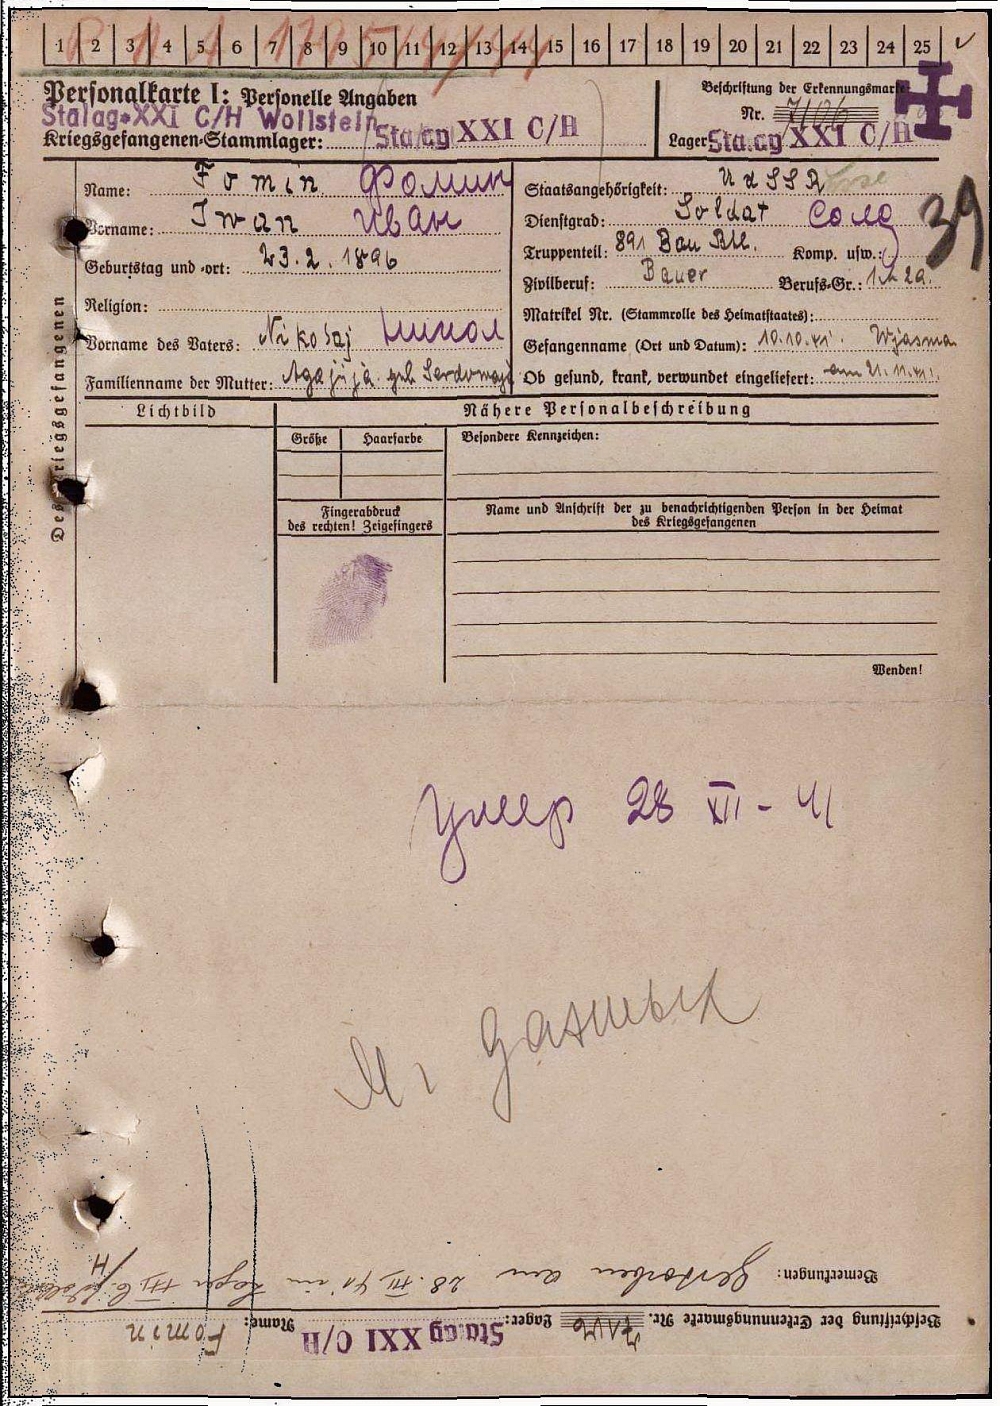 1 2 3 4 5 6 7 8 9 10 11 12 13 14 15 16 17 18 19 20 21 22 23 24 25
Personalkarte I: Personelle Angaben
Stalag XXI C/H Wollstein
Kriegsgefangenen-Stammlager: Stalag XXI C/H
Beschriftung der Erkennungsmarke
Nr. 7106
Lager: Stalag XXI C/H
Des Kriegsgefangenen
Name: Fomin Фомин
Vorname: Iwan Иван
Geburtstag und -ort: 23.2.1896
Religion:
Vorname des Vaters: Nikolaj Никол
Familienname der Mutter: geb
Staatsangehörigkeit: UdSSR
Dienstgrad: Soldat Солд
39
Truppenteil: 891 Bau Btl. Komp. usw.:
Zivilberuf: Bauer Berufs-Gr.:
Matrikel Nr. (Stammrolle des Heimatstaates):
Gefangenname (Ort und Datum): 10.10.41. Wjasma
Ob gesund, krank, verwundet eingeliefert: am 21.11.41.
Lichtbild
Nähere Personalbeschreibung
Größe Haarfarbe Besondere Kennzeichen:
Fingerabdruck
des rechten! Zeigefingers
Name und Anschrift der zu benachrichtigenden Person in der Heimat
des Kriegsgefangenen
Wenden!
Умер 28 XII - 41
Bemerkungen: Gestorben am 28. XII 41 im Lager
Beschriftung der Erkennungsmarke Nr. 7106 Lager: Stalag XXI C/H Name: Fomin